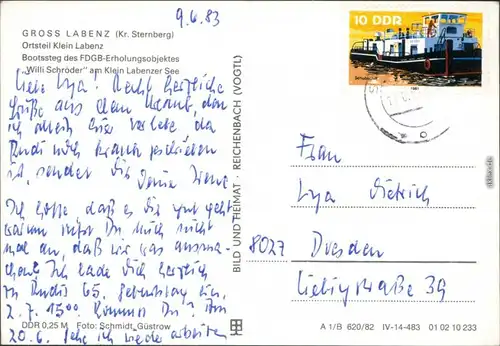 9.6.83
GROSS LABENZ (Kr. Sternberg)
Ortsteil Klein Labenz
Bootssteg des FDGB-Erholungsobjektes
"Willi Schröder" am Klein Labenzer See
Liebe Lya! Recht herzliche
Grüße aus dem Urlaub, den
ich allein hier verlebe, da
Rudi noch krank geschrieben
ist, sendet Dir Deine
Ich hoffe, daß es Dir gut geht
warum rufst Du mich nicht
mal an, daß wir was ausma-
chen? Ich lade Dich herzlich
zu Rudis 65. Geburtstag ein,
2.7. 1500 Kommst Du? Am
20.6. gehe ich wieder arbeiten
DDR 0,25 M Foto: Schmidt, Güstrow
BILD UND HEIMAT · REICHENBACH (VOGTL)
10 DDR
1981
Frau
Lya Dietrich
8027 Dresden
Liebigstraße 39
A 1/B 620/82 IV-14-483 01 02 10 233